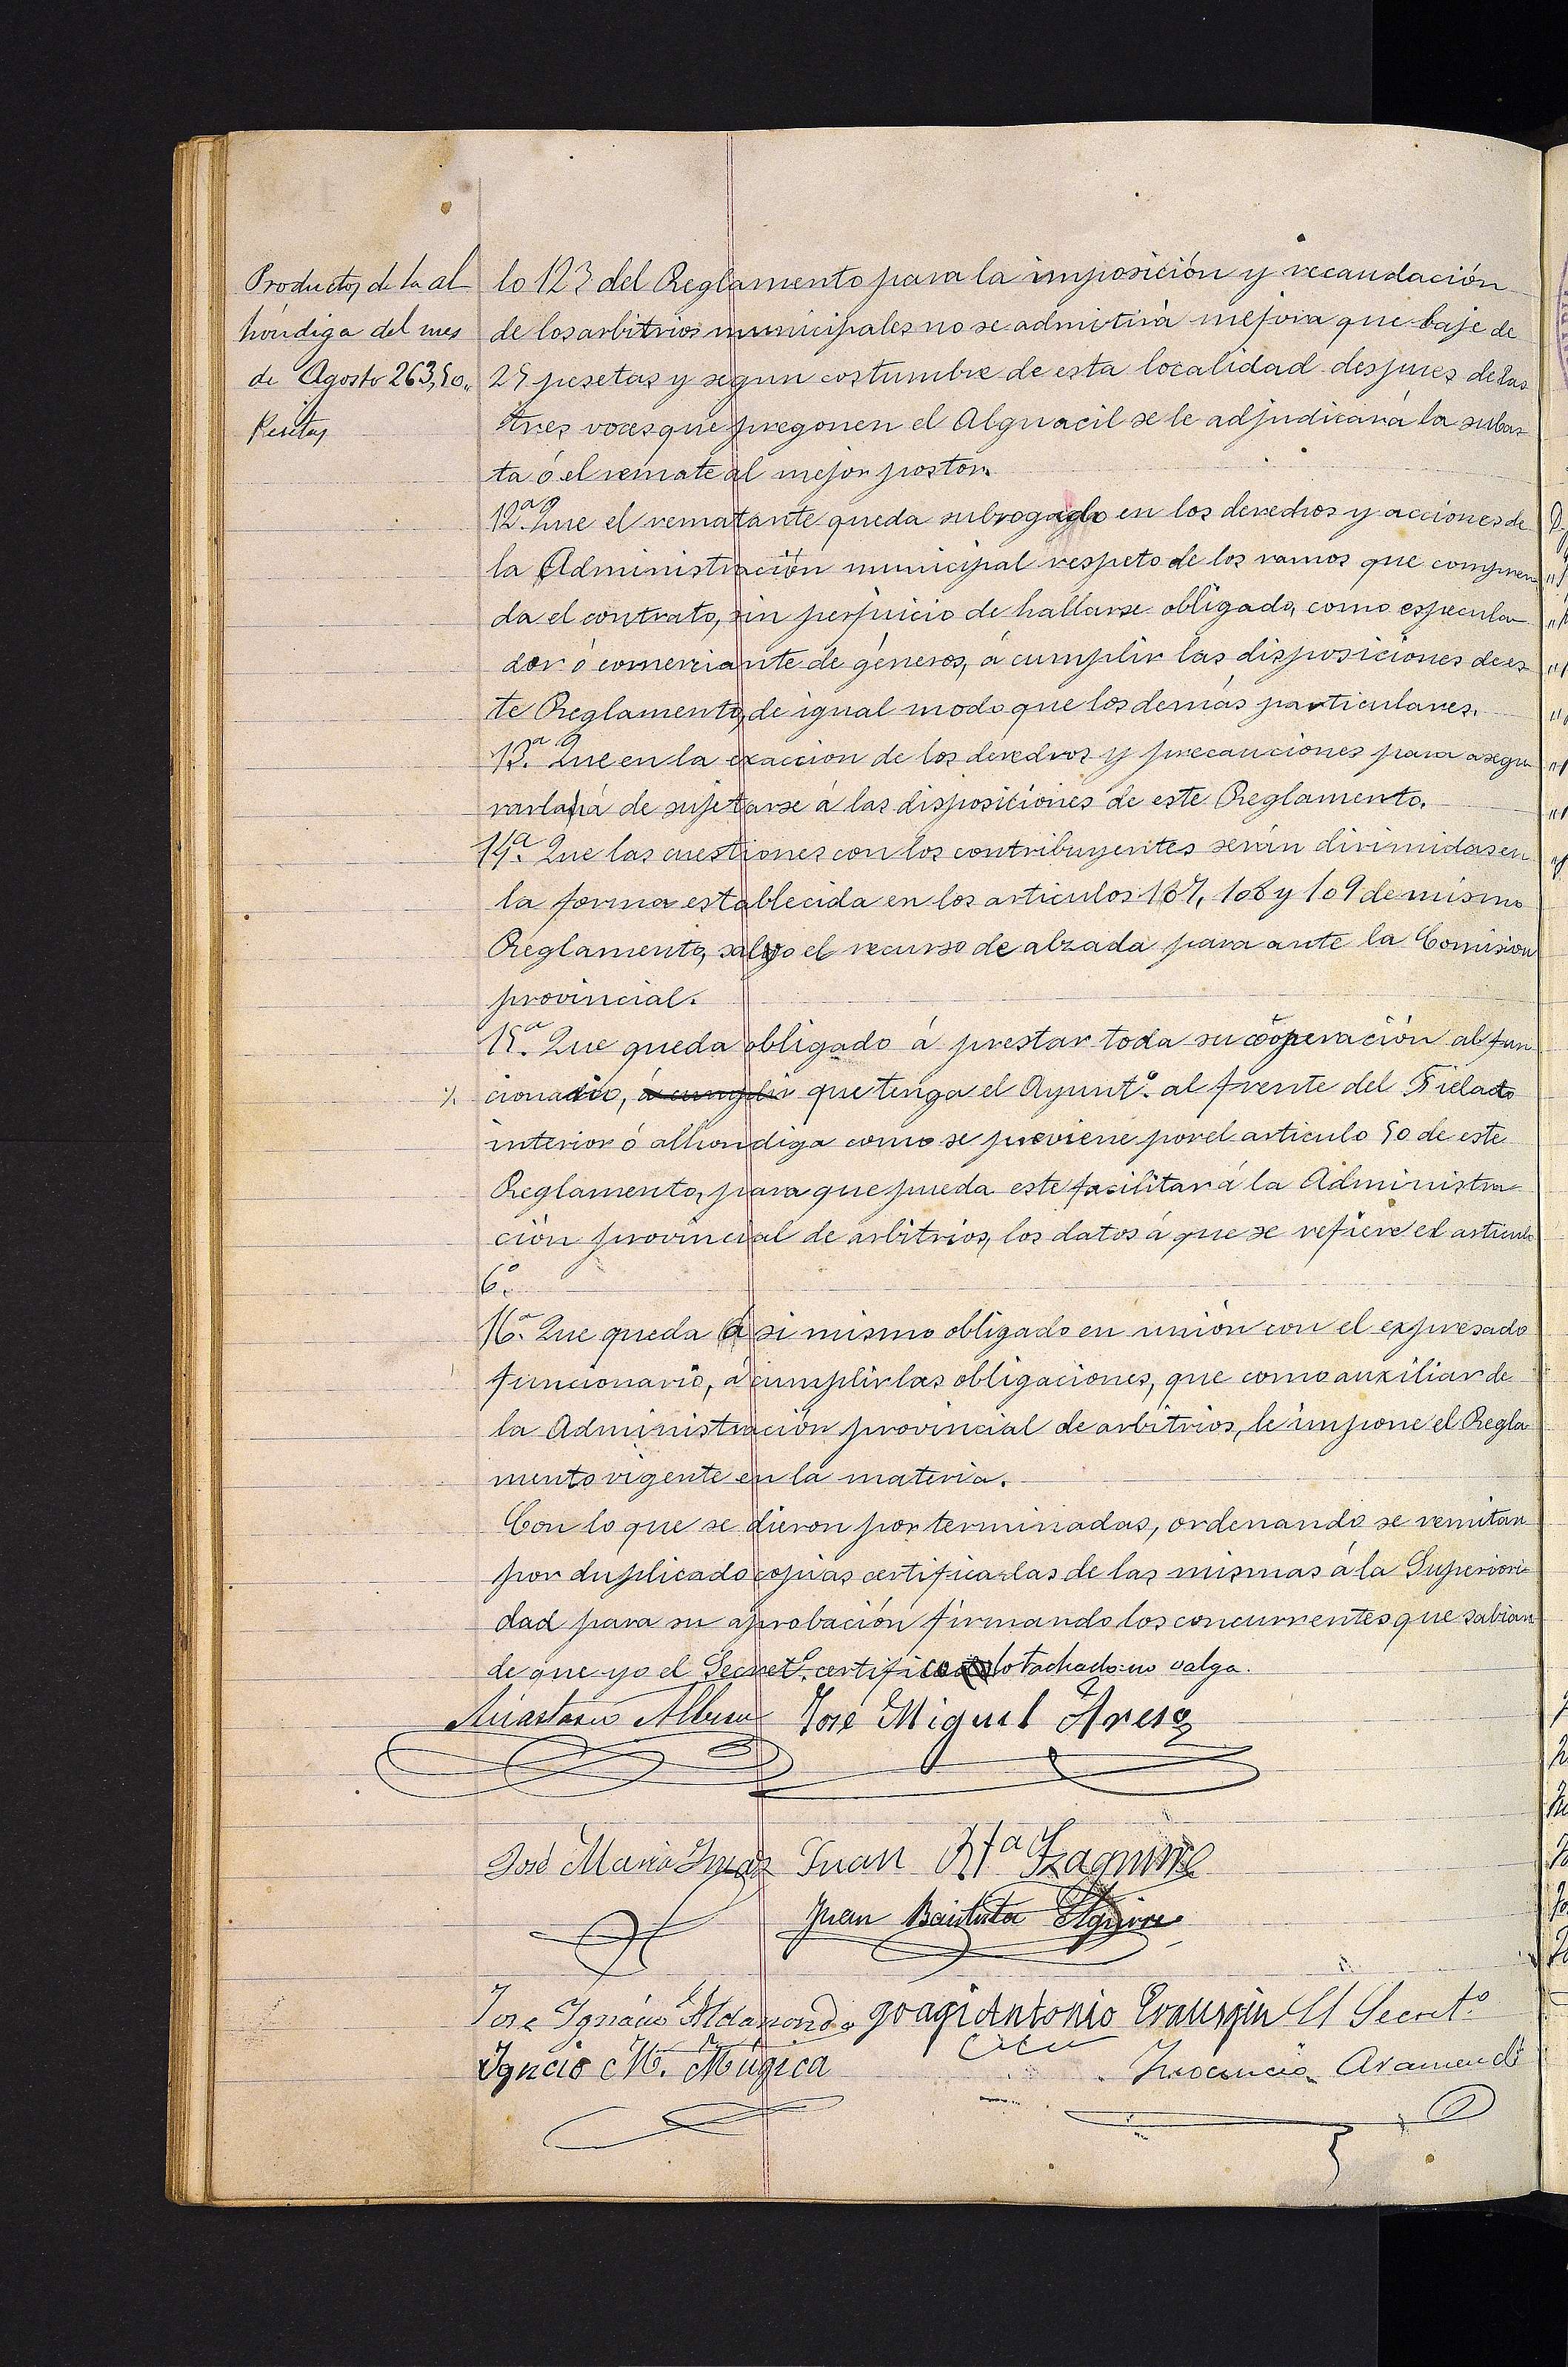 Productos de la al
hóndiga del mes
de Agosto 263,50.
Pesetas
lo 123 del Reglamento para la imposición y recaudación
de los arbitrios municipales no se admitirá mejora que baje de
25 pesetas y segun costumbre de esta localidad despues de las
tres voces que pregonen el Alguacil se le adjudicará la subas
ta ó el remate al mejor postor.
12ª. Que el rematante queda subrogado en los derechos y acciones de
la Administración municipal respeto de los ramos que compren
da el contrato, sin perjuicio de hallarse obligado, como especula
dor ó comerciante de géneros, á cumplir las disposiciones de es
te Reglamento, de igual modo que los demás particulares.
13ª. Que en la exaccion de los derechos y precauciones para asegu
rarla há de sujetarse á las disposiciones de este Reglamento.
14ª. Que las cuestiones con los contribuyentes serán dirimidas en
la forma establecida en los articulos 107, 108 y 109 de mismo
Reglamento, salvo el recurso de alzada para ante la Comision
provincial.
15ª. Que queda obligado á prestar toda su cooperación al fun
cionario, á cumplir que tenga el Ayuntº. al frente del Fielato
interior ó alhondiga como se previene por el articulo 50 de este
Reglamento, para que pueda este facilitar á la Administra
ción provincial de arbitrios, los datos á que se refiere el articulo
6º
16ª. Que queda á si mismo obligado en unión con el expresado
funcionario, á cumplir las obligaciones, que como auxiliar de
la Administración provincial de arbitrios, le impone el Regla
mento vigente en la materia.
Con lo que se dieron por terminadas, ordenando se remitan
por duplicado copias certificadas de las mismas á la Superiori
dad para su aprobación firmando los concurrentes que sabian
de que yo el Secretº. certifico lo tachado=no valga.
Anastasio Albisu José Miguel Areso
José Maria Juan Btª Yzaguirre
Juan Bautista
Jose Ignacio Aldasondo goagi Antonio Erausquin El Secretº
Ygncio M. Múgica Inocencio Aramendi